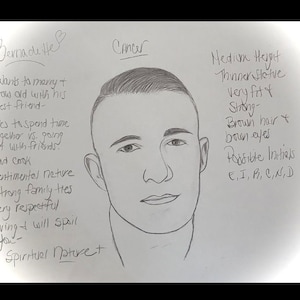 Bernadette
Cancer
wants to marry +
grow old with his
best friend-
likes to spend time
together vs. going
out with friends.
good cook
sentimental nature
strong family ties
very respectful
loving - & will spoil
you-
Spiritual Nature +
Medium Height
Thinner stature
very fit &
Strong-
Brown hair &
brown eyes
Possible Initials
E, I, B, C, N, D